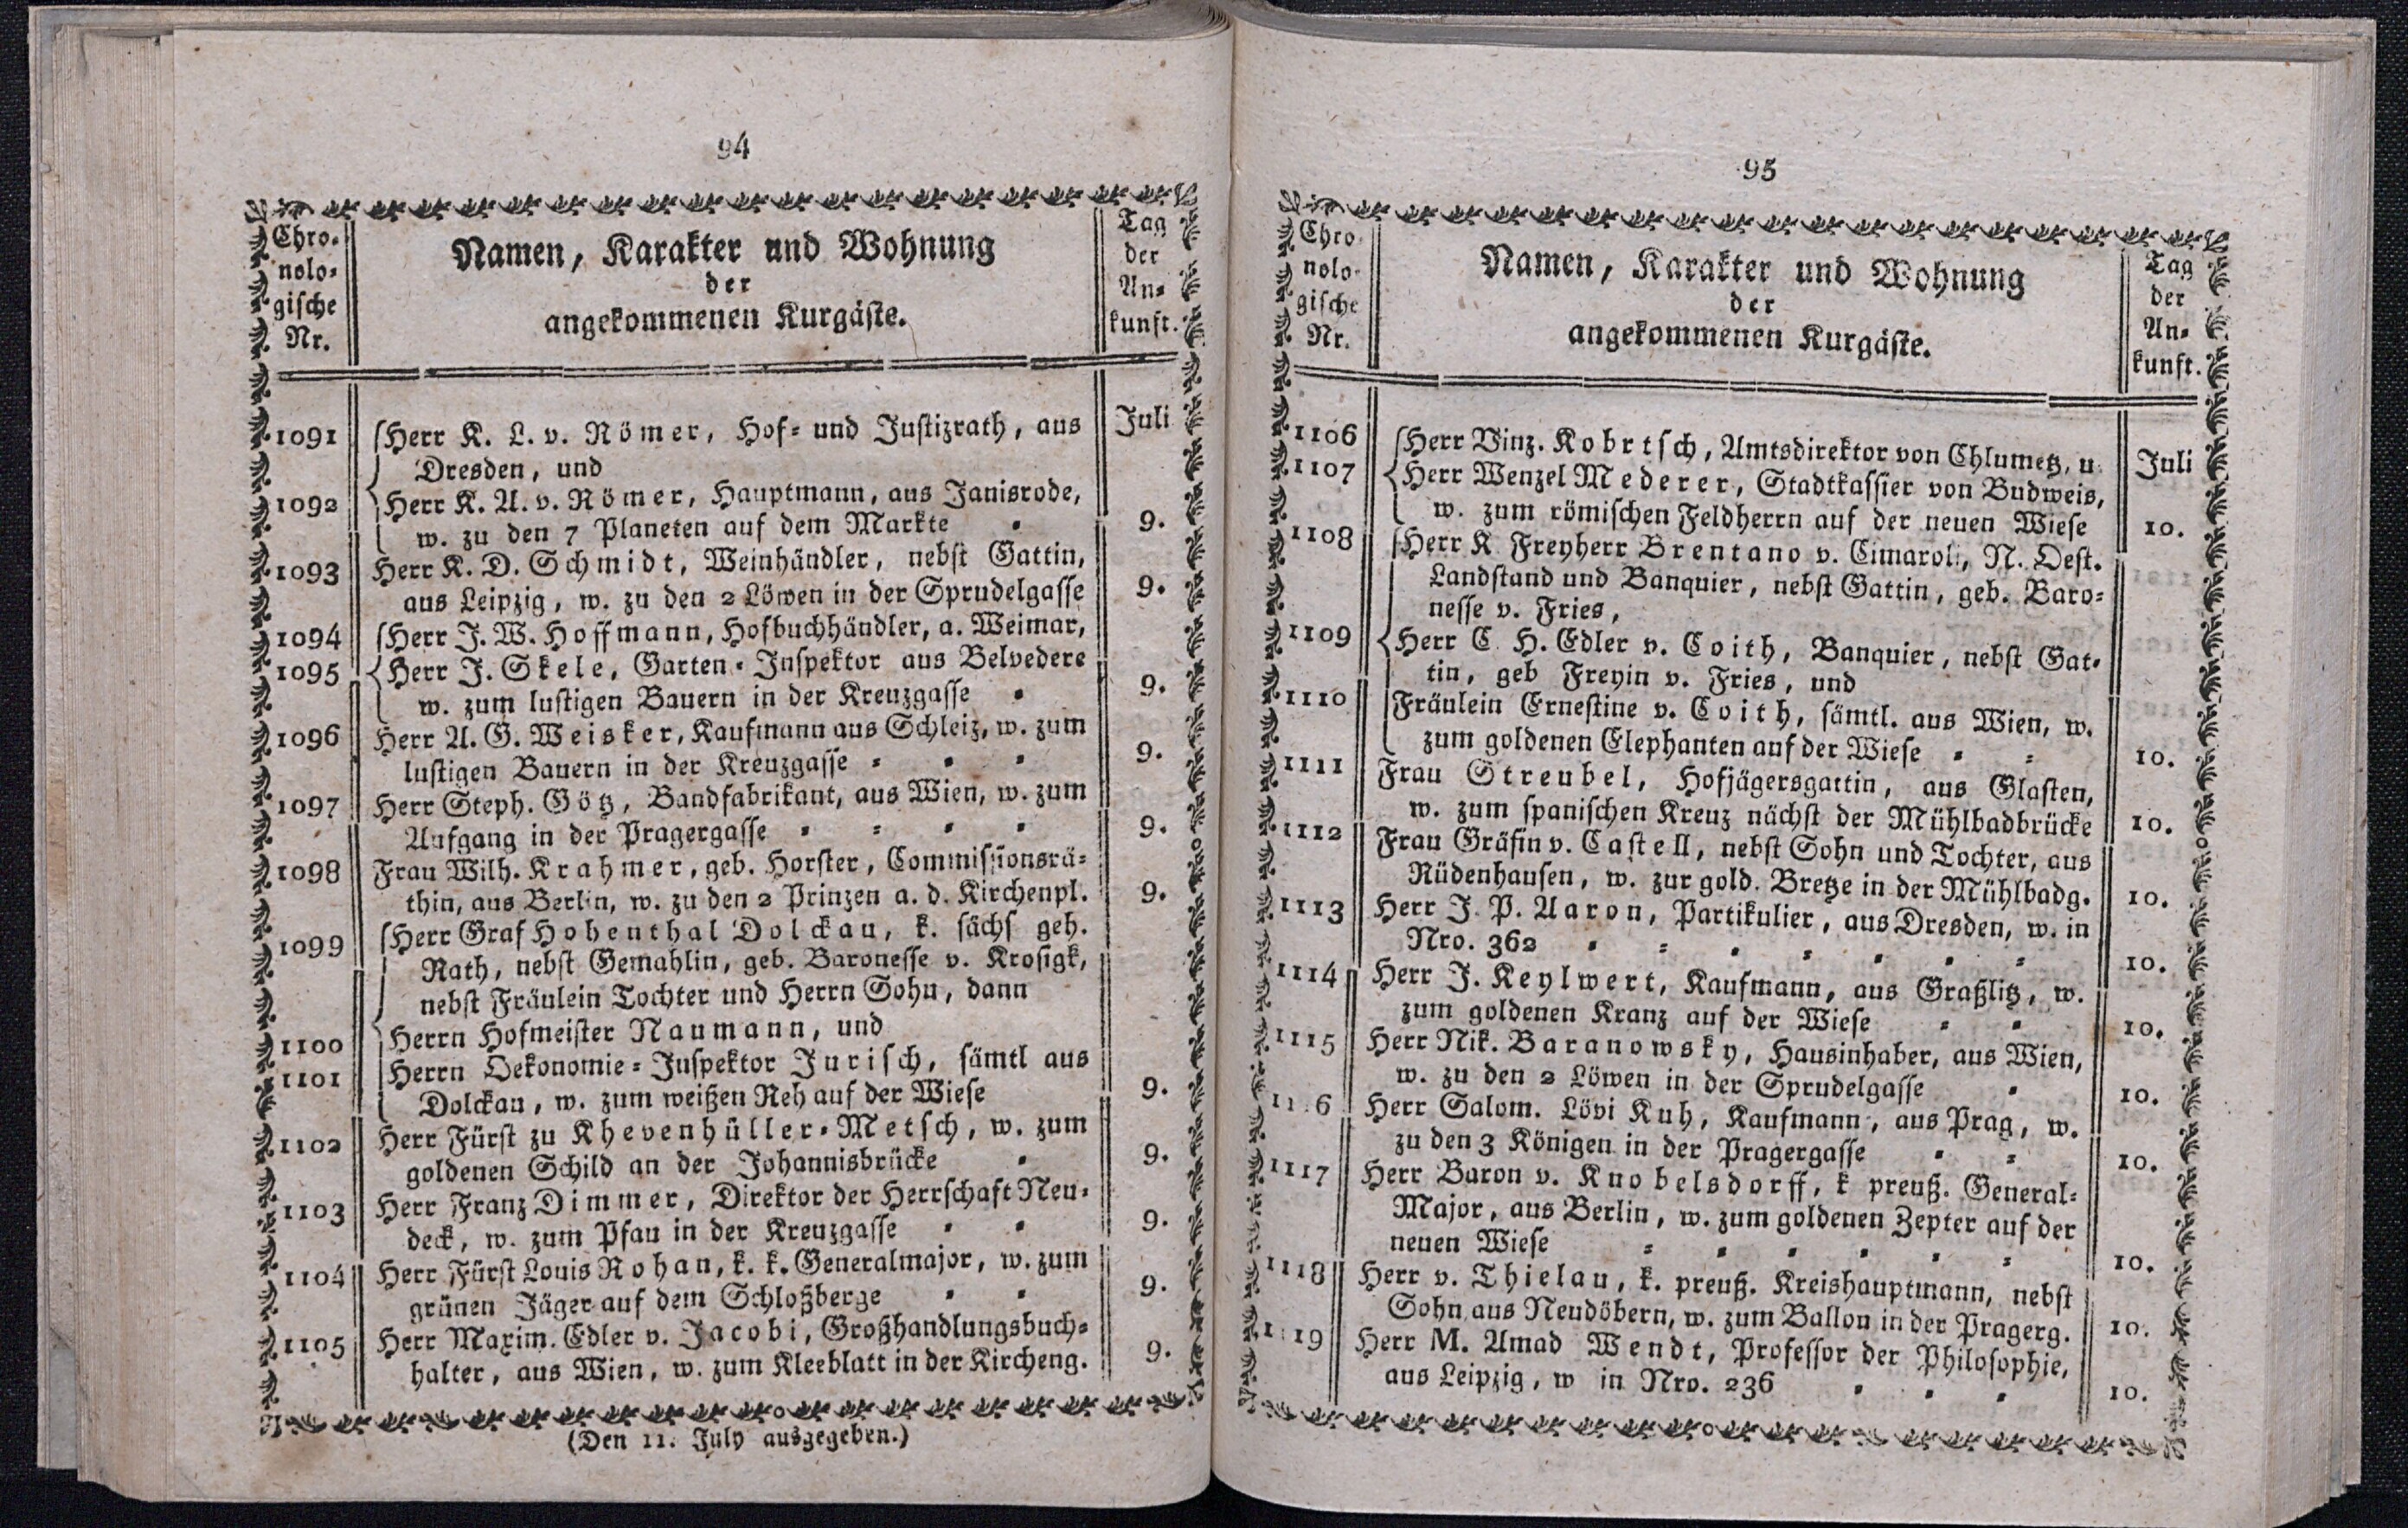 94
Chro-
nolo-
gische
Nr.
Namen, Karakter und Wohnung
der
angekommenen Kurgäste.
Tag
der
An-
kunft.
Juli
1091 Herr K. L. v. Römer, Hof- und Justizrath, aus
Dresden, und
1092 Herr K. A. v. Römer, Hauptmann, aus Janisrode,
w. zu den 7 Planeten auf dem Markte 9.
1093 Herr K. D. Schmidt, Weinhändler, nebst Gattin,
aus Leipzig, w. zu den 2 Löwen in der Sprudelgasse 9.
1094 Herr J. W. Hoffmann, Hofbuchhändler, a. Weimar,
1095 Herr J. Skele, Garten-Inspektor aus Belvedere
w. zum lustigen Bauern in der Kreuzgasse 9.
1096 Herr A. G. Weisker, Kaufmann aus Schleiz, w. zum
lustigen Bauern in der Kreuzgasse 9.
1097 Herr Steph. Götz, Bandfabrikant, aus Wien, w. zum
Aufgang in der Pragergasse 9.
1098 Frau Wilh. Krahmer, geb. Horster, Commissionsrä-
thin, aus Berlin, w. zu den 2 Prinzen a. d. Kirchenpl. 9.
1099 Herr Graf Hohenthal Dolckau, k. sächs geh.
Rath, nebst Gemahlin, geb. Baronesse v. Krosigk,
nebst Fräulein Tochter und Herrn Sohn, dann
1100 Herrn Hofmeister Naumann, und
1101 Herrn Oekonomie-Inspektor Jurisch, sämtl aus
Dolckau, w. zum weißen Reh auf der Wiese 9.
1102 Herr Fürst zu Khevenhüller-Metsch, w. zum
goldenen Schild an der Johannisbrücke 9.
1103 Herr Franz Dimmer, Direktor der Herrschaft Neu-
deck, w. zum Pfau in der Kreuzgasse 9.
1104 Herr Fürst Louis Rohan, k. k. Generalmajor, w. zum
grünen Jäger auf dem Schloßberge 9.
1105 Herr Maxim. Edler v. Jacobi, Großhandlungsbuch-
halter, aus Wien, w. zum Kleeblatt in der Kircheng. 9.
(Den 11. July ausgegeben.)
95
Chro-
nolo-
gische
Nr.
Namen, Karakter und Wohnung
der
angekommenen Kurgäste.
Tag
der
An-
kunft.
Juli
1106 Herr Vinz. Kobrtsch, Amtsdirektor von Chlumetz, u.
1107 Herr Wenzel Mederer, Stadtkassier von Budweis,
w. zum römischen Feldherrn auf der neuen Wiese 10.
1108 Herr K Freyherr Brentano v. Cimaroli, N. Oest.
Landstand und Banquier, nebst Gattin, geb. Baro-
nesse v. Fries,
1109 Herr C. H. Edler v. Coith, Banquier, nebst Gat-
tin, geb Freyin v. Fries, und
1110 Fräulein Ernestine v. Coith, sämtl. aus Wien, w.
zum goldenen Elephanten auf der Wiese 10.
1111 Frau Streubel, Hofjägersgattin, aus Glasten,
w. zum spanischen Kreuz nächst der Mühlbadbrücke 10.
1112 Frau Gräfin v. Castell, nebst Sohn und Tochter, aus
Rüdenhausen, w. zur gold. Bretze in der Mühlbadg. 10.
1113 Herr J. P. Aaron, Partikulier, aus Dresden, w. in
Nro. 362 10.
1114 Herr J. Keylwert, Kaufmann, aus Graßlitz, w.
zum goldenen Kranz auf der Wiese 10.
1115 Herr Nik. Baranowsky, Hausinhaber, aus Wien,
w. zu den 2 Löwen in der Sprudelgasse 10.
11 6 Herr Salom. Lövi Kuh, Kaufmann, aus Prag, w.
zu den 3 Königen in der Pragergasse 10.
1117 Herr Baron v. Knobelsdorff, k preuß. General-
Major, aus Berlin, w. zum goldenen Zepter auf der
neuen Wiese 10.
1118 Herr v. Thielau, k. preuß. Kreishauptmann, nebst
Sohn aus Neudöbern, w. zum Ballon in der Pragerg. 10.
1119 Herr M. Amad Wendt, Professor der Philosophie,
aus Leipzig, w in Nro. 236 10.